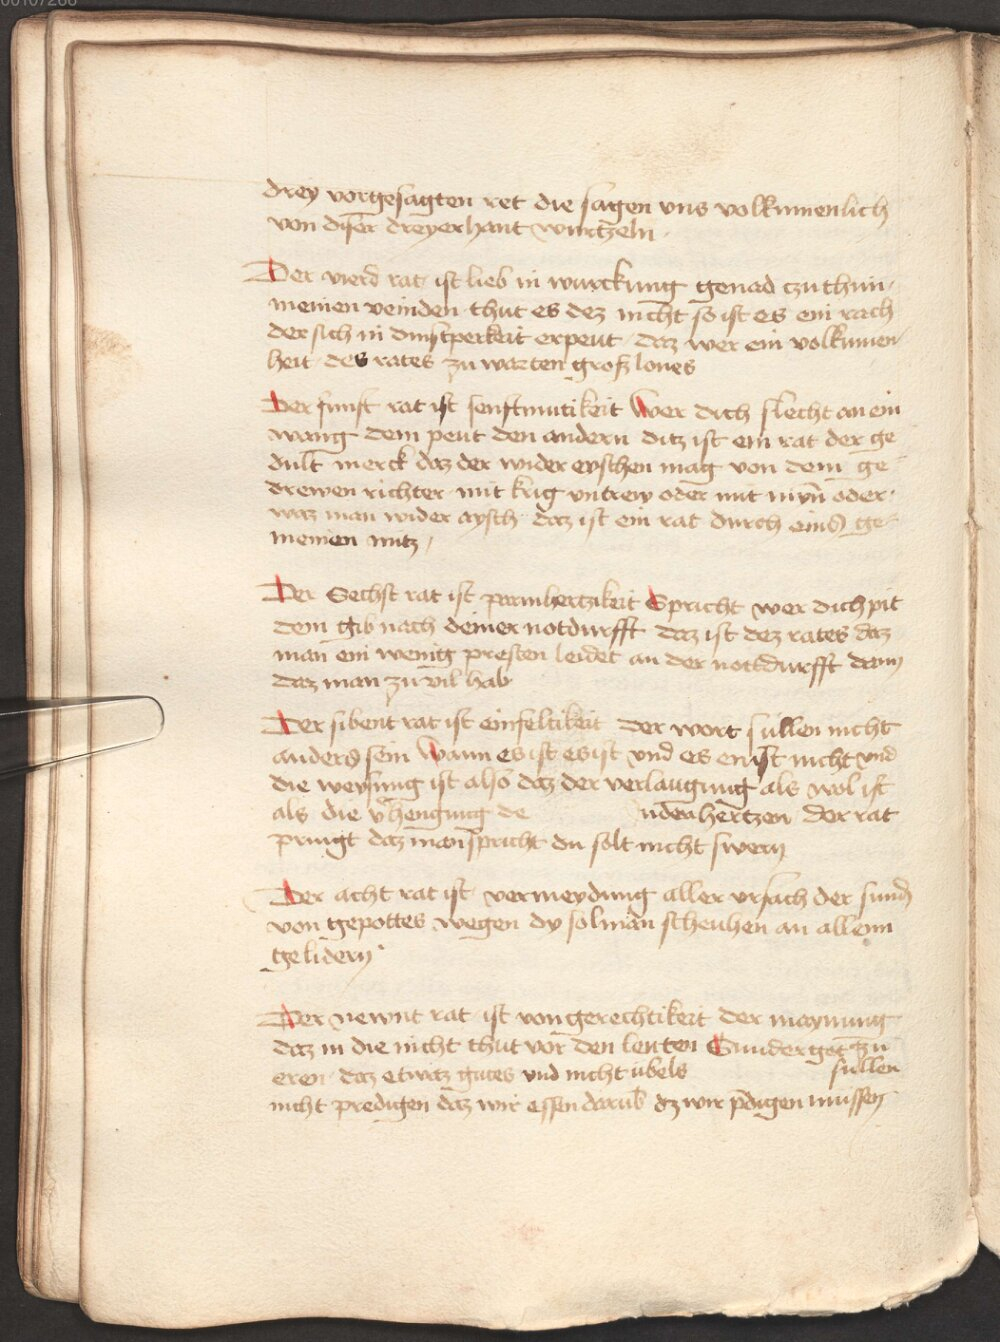 00107266
drey vorgesagten ret die sagen uns volkumenlich
von diser dreyerhant wurtzeln
Der vierd rat ist lieb in wurckung genad czu thun
meinen veinden thut es dez nicht so ist es ein rach
der sich in dinstperkeit erpeut daz wer ein volkumen
heit des rates zu warten groß lones
Der funft rat ist senftmutikeit Wer dich slecht an ein
wang dem peut den andern ditz ist ein rat der ge
dult merck daz der wider eyschen mag von dem ge
drewen richter mit krig untrew oder mit oder
waz man wider aysch daz ist ein rat durch eins ge
meinen nutz
Der Sechst rat ist parmhertzikeit Spricht wer dich pit
dem gib nach deiner notdurfft daz ist dez rates daz
man ein wenig presten leidet an der nottdurfft dann
daz man zu vil hab
Der sibent rat ist einfeltikeit der wort sullen nicht
anders sein Wann es ist es ist und es en ist nicht und
die weysung ist also daz der verlaugnug als wol ist
als die vhengnug de nden hertzen der rat
pringt daz man spricht du solt nicht swern
Der acht rat ist vermeydung aller ursach der sund
von gepottes wegen dy sol man scheuhen an allenn
gelidern
Der newnt rat ist von gerechtikeit der maynung
daz in die nicht thut vor den leuten Sunder got zu
eren daz etwaz gutes und nicht ubels sullen
nicht predigen daz wir essen darub dz wir pdigen mussen